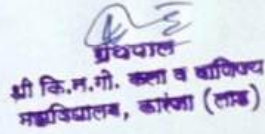 ग्रंथपाल
श्री कि.न.गो. कला व वाणिज्य
महाविद्यालय, कारंजा (लाड)